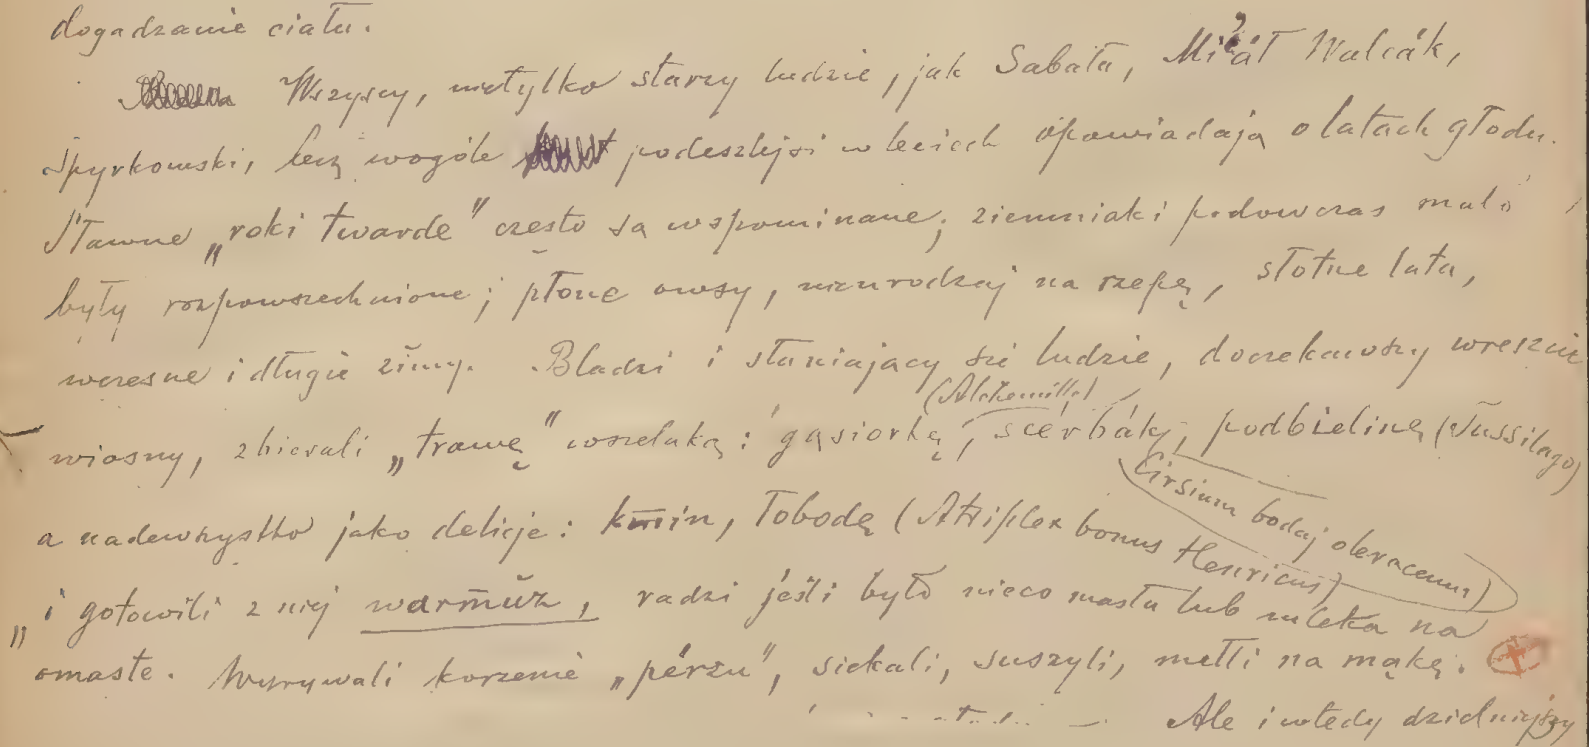 dogadzanie ciału.
Wszyscy, nietylko starzy ludzie, jak Sabała, Walcák,
Spyrkowski, lecz wogóle podeszlejsi w leciech opowiadają o latach głodu.
Sławne „roki twarde" często są wspominane; ziemniaki podówczas mało
były rozpowszechnione; płone owsy, nieurodzaj na rzepę, słotne lata,
wczesne i długie zimy. Bladzi i słaniający się ludzie, doczekawszy wreszcie
(Alchemilla)
wiosny, zbierali „trawę" wszelaką: gąsiorkę, scérbák, podbielinę (Tussilago)
(Cirsium bodaj oleraceum)
a nadewszystko jako delicje: kmin, łobodę (Atriplex bonus Henricus)
„i gotowili z niej warmuz, radzi jeśli było nieco masła lub mleka na
omastę. Wyrywali korzenie „pérzu", siekali, suszyli, mełli na mąkę.
Ale i wtedy dzielniejszy